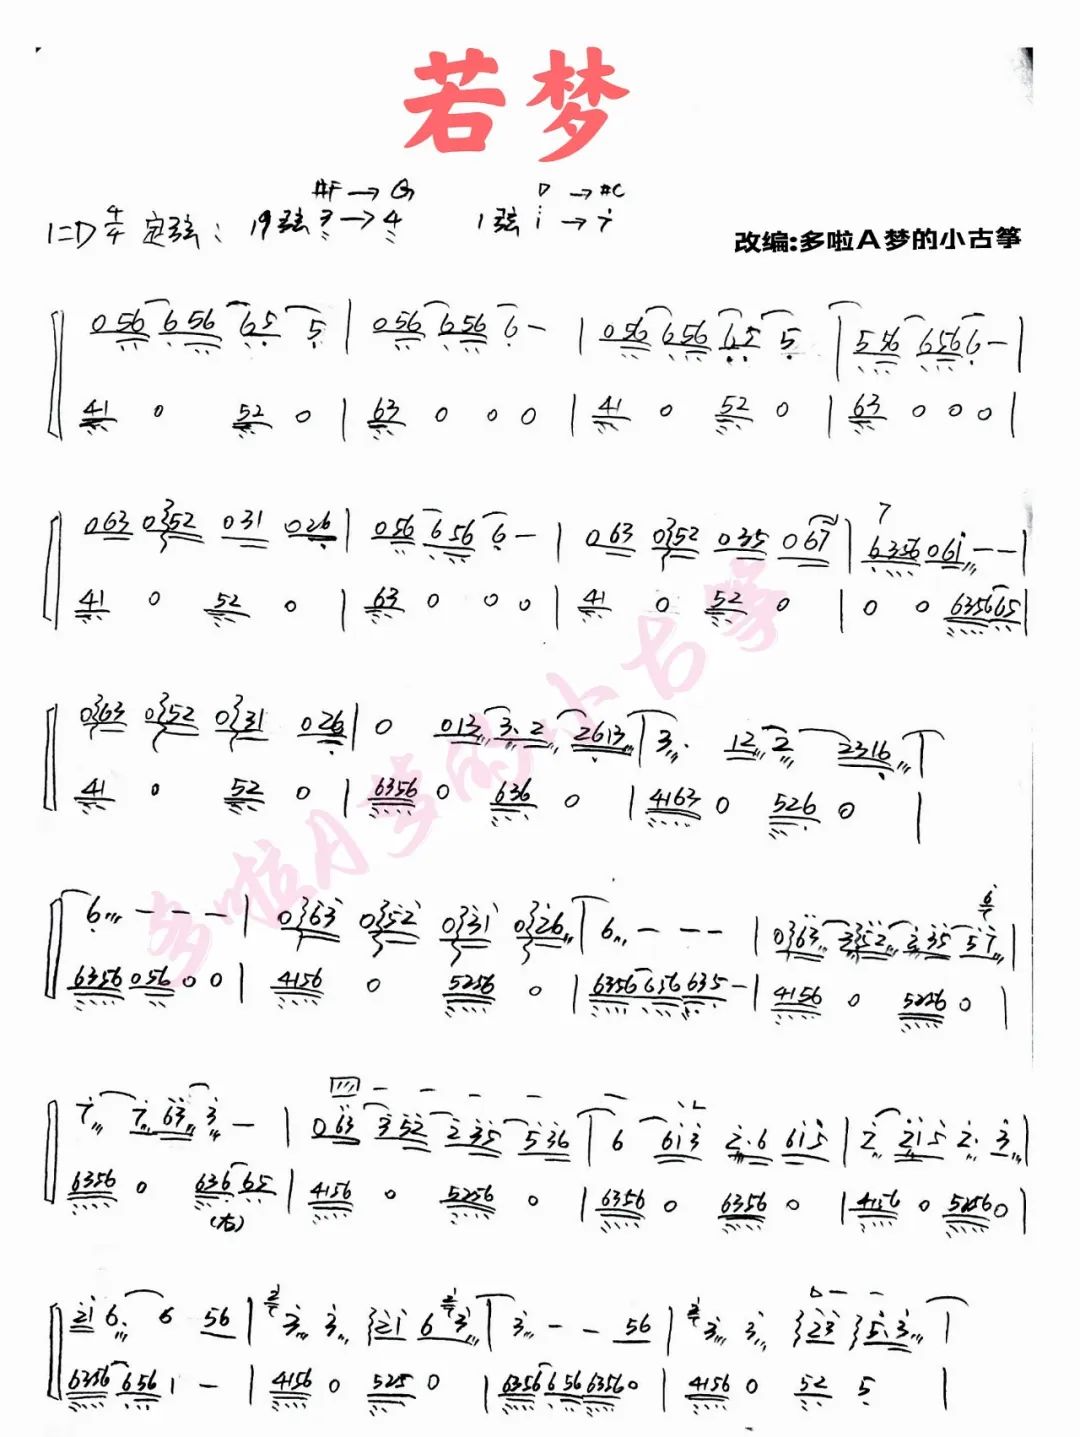 若梦
#F → G D → #C
1=D 4/4 定弦: 19弦 3 → 4 1弦 i → 7
改编:多啦A梦的小古筝
0 56 6 56 6 5 5 | 0 56 6 56 6 - | 0 56 6 56 6 5 5 | 5 56 6 56 6 - |
41 0 52 0 | 63 0 0 0 | 41 0 52 0 | 63 0 0 0 |
0 63 0 52 0 31 0 26 | 0 56 6 56 6 - | 0 63 0 52 0 35 0 67 | 6356 0 61 - - |
41 0 52 0 | 63 0 0 0 | 41 0 52 0 | 0 0 6356 65 |
0 63 0 52 0 31 0 26 | 0 0 13 3. 2 2613 | 3. 12 2 2316 |
41 0 52 0 | 6356 0 636 0 | 4163 0 526 0 |
6 - - - | 0 63 0 52 0 31 0 26 | 6 - - - | 0 63 3 52 2 35 5 7 |
6356 0 56 0 0 | 4156 0 5256 0 | 6356 6 56 635 - | 4156 0 5256 0 |
7 7 63 3 - | 0 63 3 52 2 35 5 36 | 6 613 2. 6 615 | 2 215 2. 3 |
6356 0 636 65 | 4156 0 5256 0 | 6356 0 6356 0 | 4156 0 5256 0 |
(右)
21 6 6 56 | 3 3 21 6 3 | 3 - - 56 | 3 3 23 5. 3 |
6356 6 56 1 - | 4156 0 525 0 | 6356 6 56 6356 0 | 4156 0 52 5 |
多啦A梦的小古筝